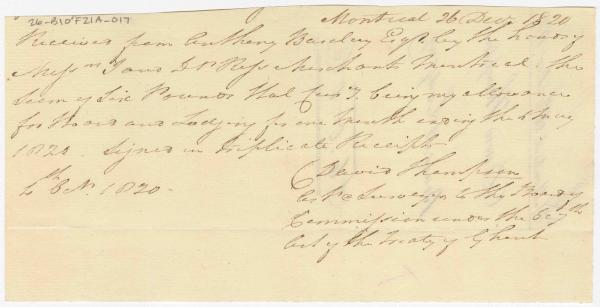 26-B10-F21A-017
Montreal 26 Decr 1820
Received from Anthony Barclay Esqr by the hands of
Messrs Jand Dd Ross Merchants Montreal the
Sum of Six Pounds Hal Curry, being my allowance
for Board and Lodging for one month ending the May
1820. Signed in Duplicate Receipts
David Thompson
1820.
Astr & Surveyor to the Board of
Commission under the 6 & 7th
Art of the Treaty of Ghent